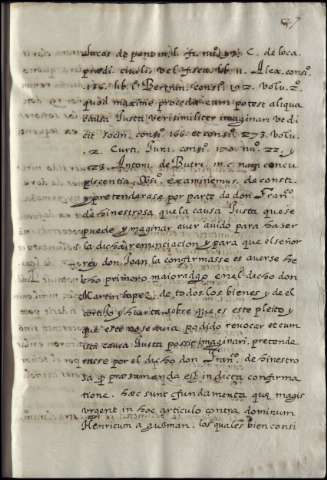 lucas de pena in l. fi. nu. 43. C. de loca.
prædi. civilis vel fisca. lib. 11. Alex. consi.
136. lib. 1. Bertran. consi. 192. volu. 2.
quod maxime procedit cum potest aliqua
causa Iusta verisimiliter imaginari ve di
cit socin. consi. 166. et consi. 273. volu.
.2. Curti. Iuni. consi. 120. nu. 22. y
.23. Antoni. de Butri. in c. nam concu
piscentia, de consti.
y pretenderase por parte de don Fran.co
de hinestrosa que la causa Iusta que se
puede ymaginar aver avido para hazer
la dicha renunciacion y para que el señor
rey don Joan la confirmasse es averse he
cho primero maioradgo en el dicho don
Martin lopez de todos los bienes y de el
cortijo y huerta sobre que es este pleito y
que este no se avia podido revocar et cum
ista causa Iusta possit imaginari, pretende
tiene por el dicho don Fran.co de hinestro
sa q præsumenda est in dicta confirma
tione. hæc sunt fundamenta quæ magis
urgent in hoc articulo contra dominum
Henricum a guzman. los quales bien consi